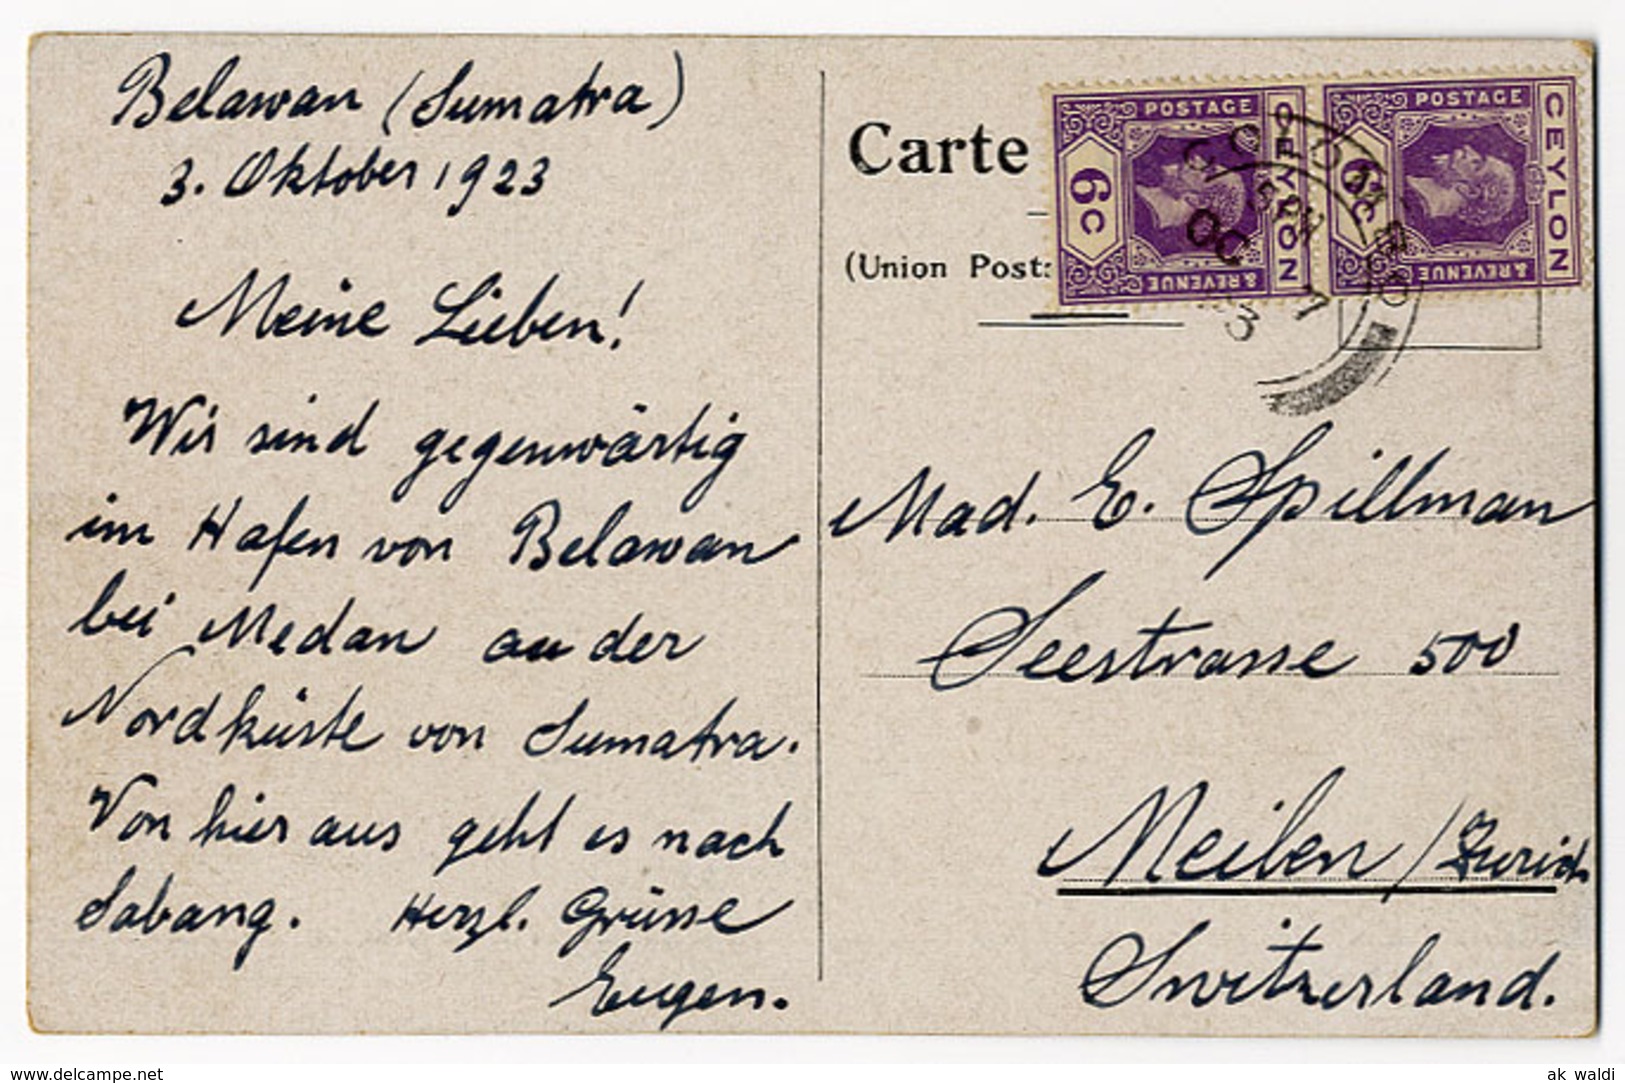 Belawan (Sumatra)
3. Oktober 1923
Meine Lieben!
Wir sind gegenwärtig
im Hafen von Belawan
bei Medan an der
Nordküste von Sumatra.
Von hier aus geht es nach
Sabang. Herzl. Grüsse
Eugen.
Carte
(Union Post
POSTAGE
& REVENUE
CEYLON
6c
POSTAGE
& REVENUE
CEYLON
6c
COLOMBO
OC
Mad. E. Spillman
Seestrasse 500
Meilen / Zurich
Switzerland.
delcampe.net
ak waldi